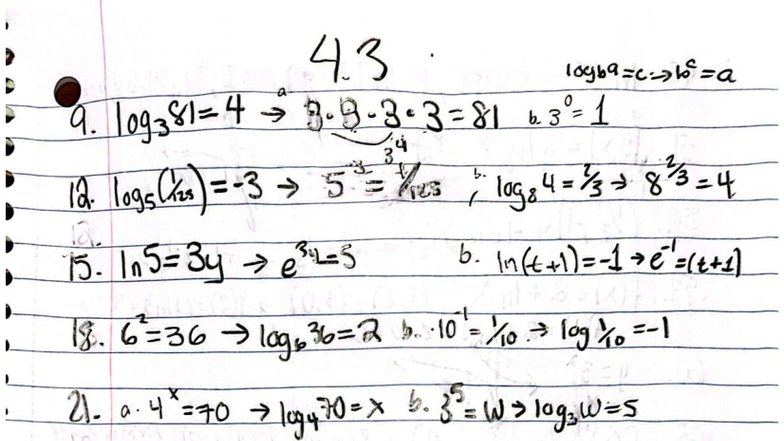 4.3
log_b a = c → b^c = a
9. log₃81 = 4 → a 3·3·3·3 = 81 b. 3⁰ = 1
3⁴
12. log₅(1/125) = -3 → 5⁻³ = 1/125 b. log₈ 4 = 2/3 → 8^2/3 = 4
15. ln5 = 3y → e^3y = 5 b. ln(t+1) = -1 → e⁻¹ = (t+1)
18. 6² = 36 → log₆36 = 2 b. 10⁻¹ = 1/10 → log 1/10 = -1
21. a. 4ˣ = 70 → log₄70 = x b. 3⁵ = w → log₃w = 5